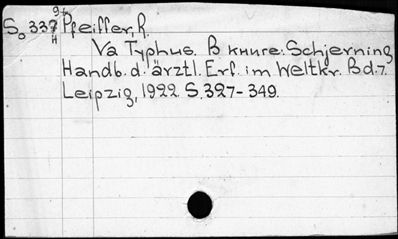 9
S₀ 337 Pfeiffer, R.
H
Va Typhus. В книге: Schjerning
Handb. d. ärztl. Erf. im Weltkr. Bd. 7.
Leipzig, 1922. S. 327-349.